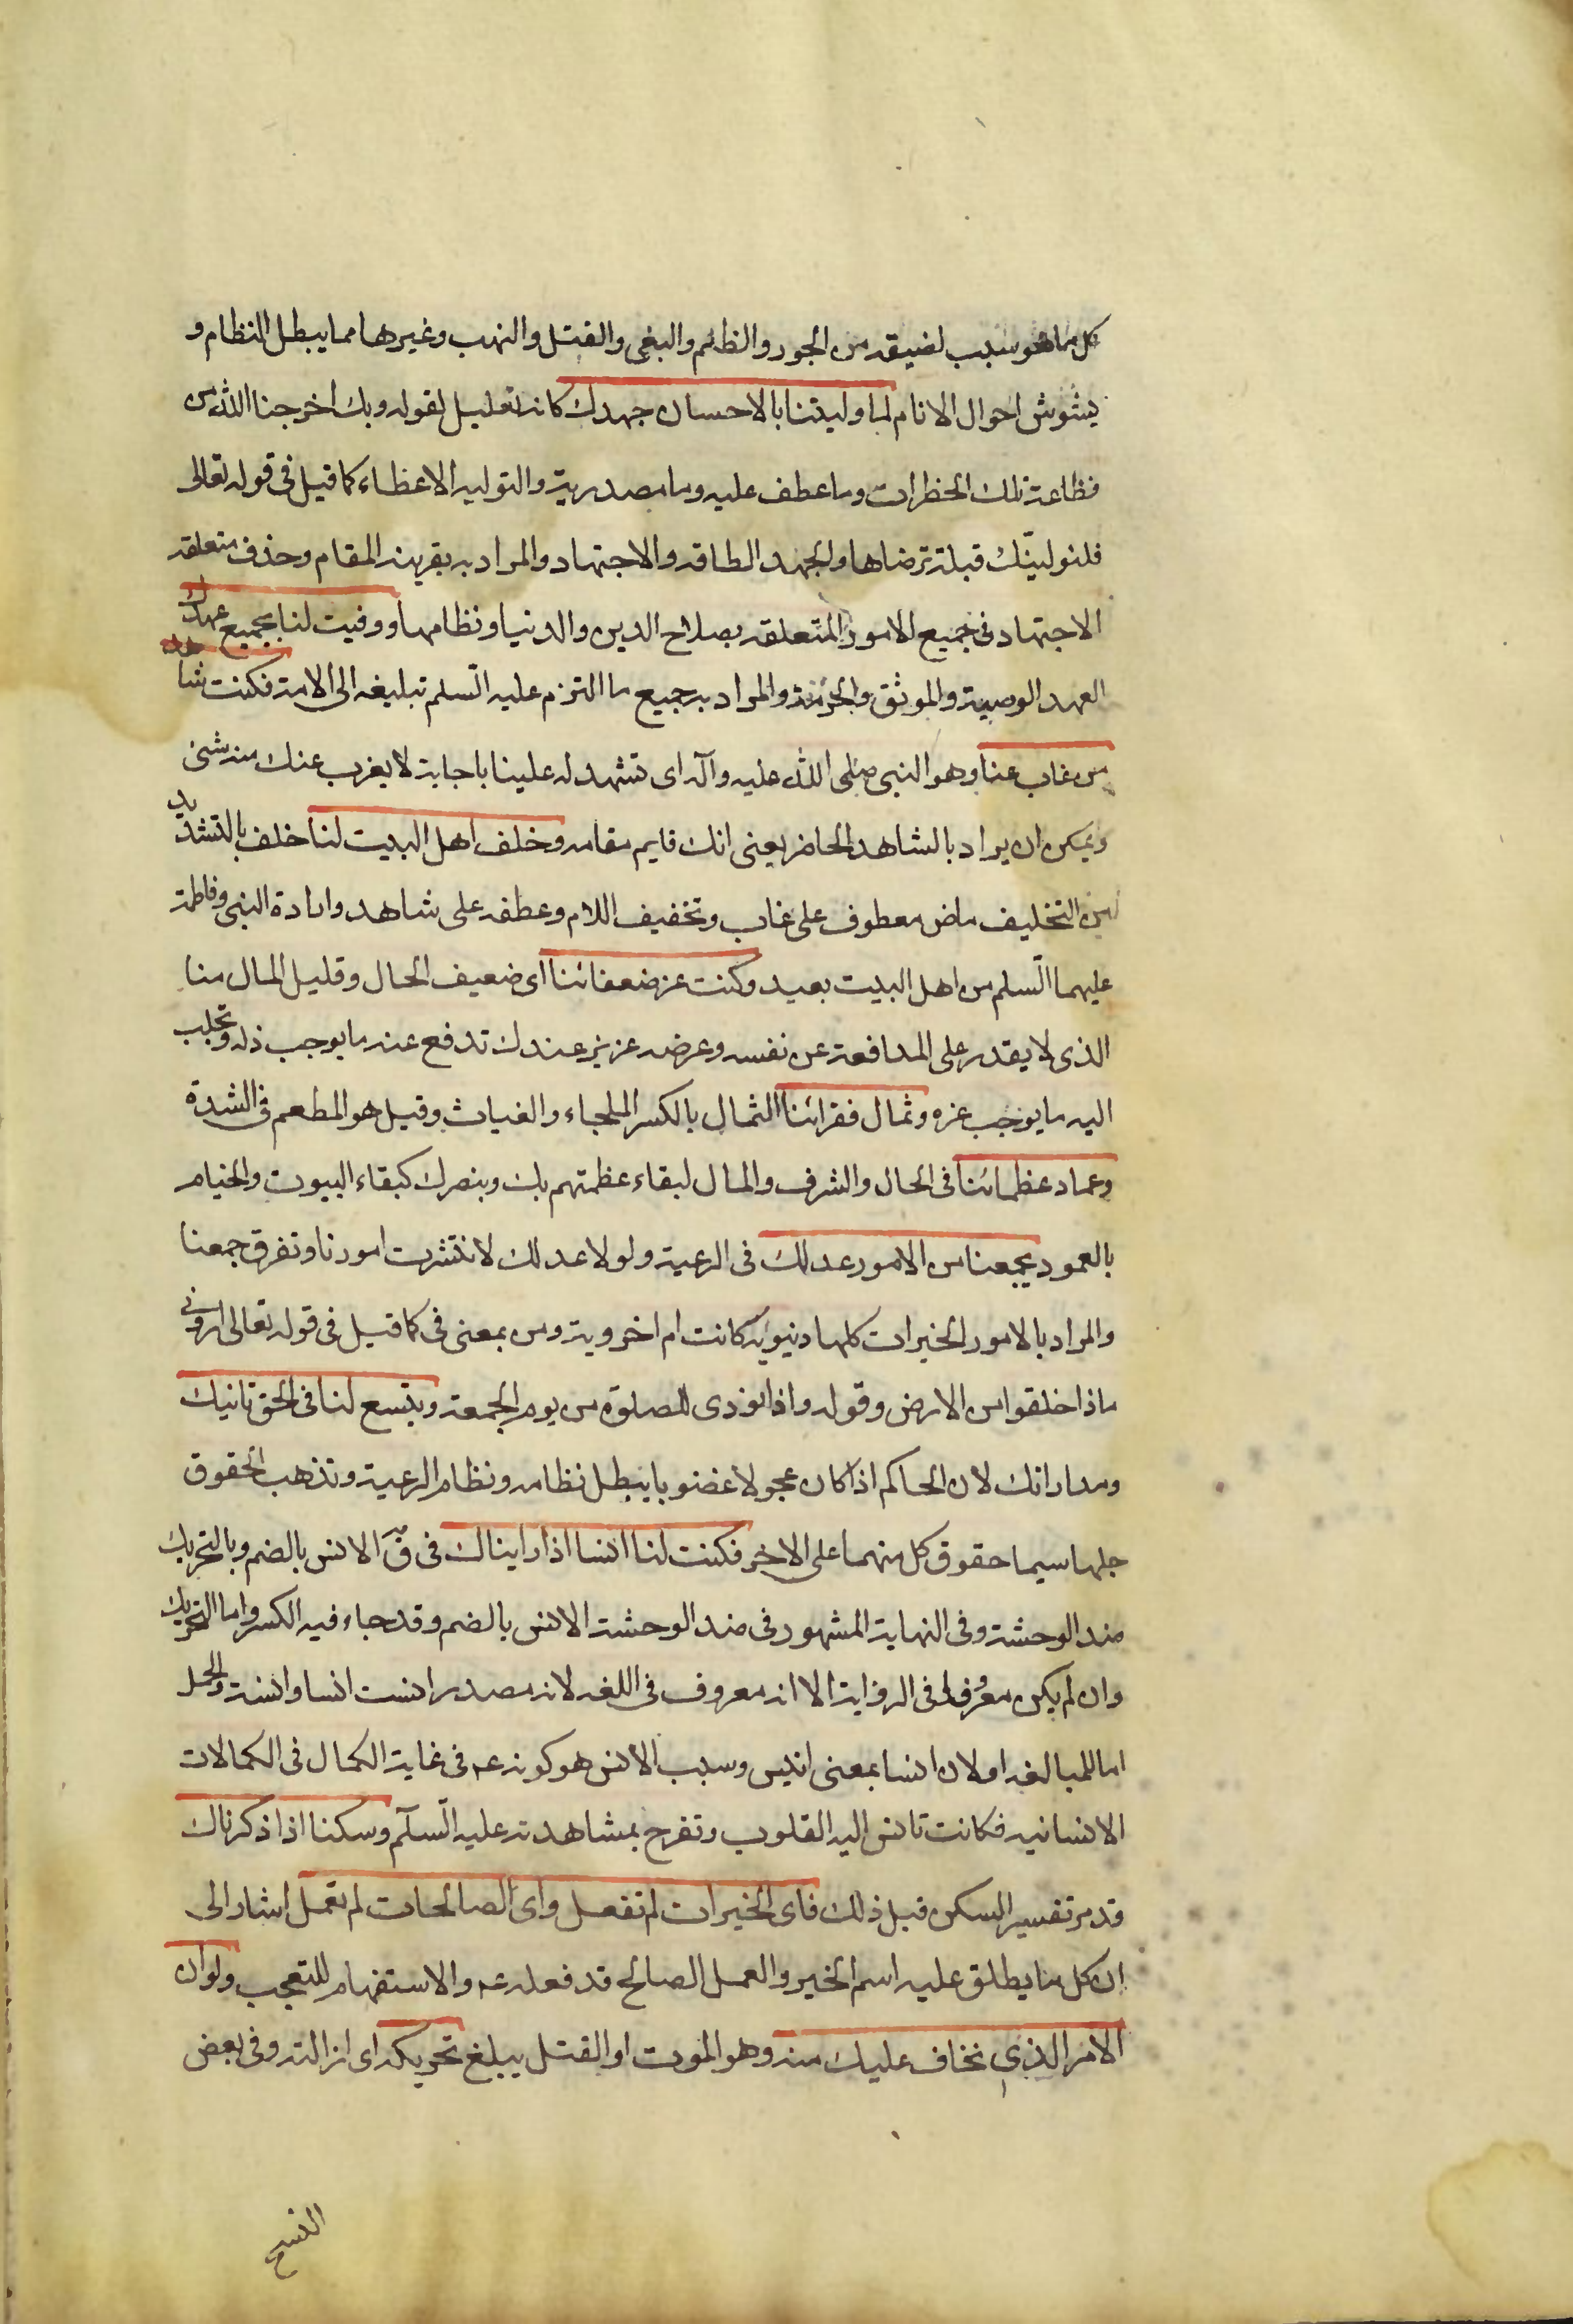 كل ما هو سبب لضيقه من الجور والظلم والبغى والقتل والنهب وغيرها مما يبطل النظام و
يشوش احوال الانام لما وليتنا بالاحسان جهدك كانه تعليل لقوله وبك اخرجنا الله من
فظاعة تلك الخطرات وما عطف عليه وما مصدرية والتوليه الاعطاء كما قيل فى قوله تعالى
فلنولينّك قبلة ترضاها والجهد الطاقه والاجتهاد والمراد به بقرينه المقام وحذف متعلقه
الاجتهاد فى جميع الامور المتعلقه بصلاح الدين والدنيا ونظامها ووفيت لنا بجميع عهدك
العهد الوصية والموثق والحرمة والمراد به جميع ما التزم عليه السّلم تبليغه الى الامة فكنت شاهد
من غاب عنا وهو النبى صلى الله عليه وآله اى تشهد له علينا باجابة لا يغرب عنك منه شئ
ويمكن ان يراد بالشاهد الحاضر يعنى انك قايم مقامه وخلف اهل البيت لنا خلف بالتشديد
من التخليف ماض معطوف على غاب وتخفيف اللام وعطفه على شاهد وارادة النبى وفاطمة
عليهما السّلم من اهل البيت بعيد وكنت عز ضعفائنا اى ضعيف الحال وقليل المال منا
الذى لا يقدر على المدافعة عن نفسه وعرضه عزيز عندك تدفع عنه ما يوجب ذله وتجلب
اليه ما يوجب عزه وثمال فقرائنا الثمال بالكسر الملجاء والغياث وقيل هو المطعم فى الشدة
وعماد عظمائنا فى الحال والشرف والمال لبقاء عظمتهم بك وبنصرك كبقاء البيوت والخيام
بالعمود يجمعنا من الامور عدلك فى الرعية ولولا عدلك لانتشرت امورنا وتفرق جمعنا
والمراد بالامور الخيرات كلها دنيوية كانت ام اخروية ومن بمعنى فى كما قيل فى قوله تعالى ارونى
ماذا خلقوا من الارض وقوله واذا نودى للصلوة من يوم الجمعة ويتسع لنا فى الحق تانيك
ومداراتك لان الحاكم اذا كان عجولا غضوبا يبطل نظامه ونظام الرعية وتذهب الحقوق
جلها سيما حقوق كل منهما على الاخر فكنت لنا انسا اذا رايناك فى ق الانس بالضم وبالتحريك
ضد الوحشة وفى النهاية المشهور فى ضد الوحشة الانس بالضم وقد جاء فيه الكسر واما التحريك
وان لم يكن معروفا فى الرواية الا انه معروف فى اللغه لانه مصدر انست انسا وانسة والحمل
اما للمبالغه او لان انسا بمعنى انيس وسبب الانس هو كونه عم فى غاية الكمال فى الكمالات
الانسانيه فكانت تانس اليه القلوب وتفرح بمشاهدته عليه السّلم وسكنا اذا ذكرناك
قد مر تفسير السكن قبل ذلك فاى الخيرات لم تفعل واى الصالحات لم تعمل اشار الى
ان كل ما يطلق عليه اسم الخير والعمل الصالح قد فعله عم والاستفهام للتعجب ولو ان
الامر الذى نخاف عليك منه وهو الموت او القتل يبلغ تحريكه اى ازالته وفى بعض
النسخ